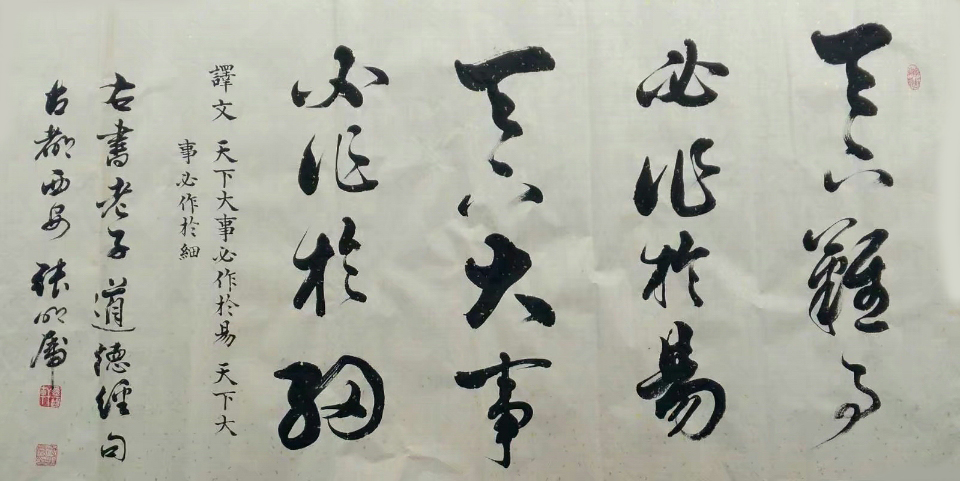 天下難事
必作於易
天下大事
必作於細
譯文 天下大事必作於易 天下大
事必作於細
右書老子道德經句
古都西安 張明